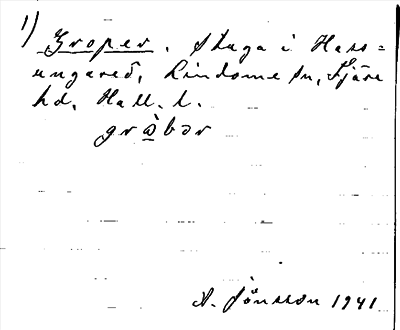 1) Groper. Stuga i Hass=
ungared, Lindome sn, Fjäre
hd, Hall. l.
grὰbər
A. Jönsson 1941